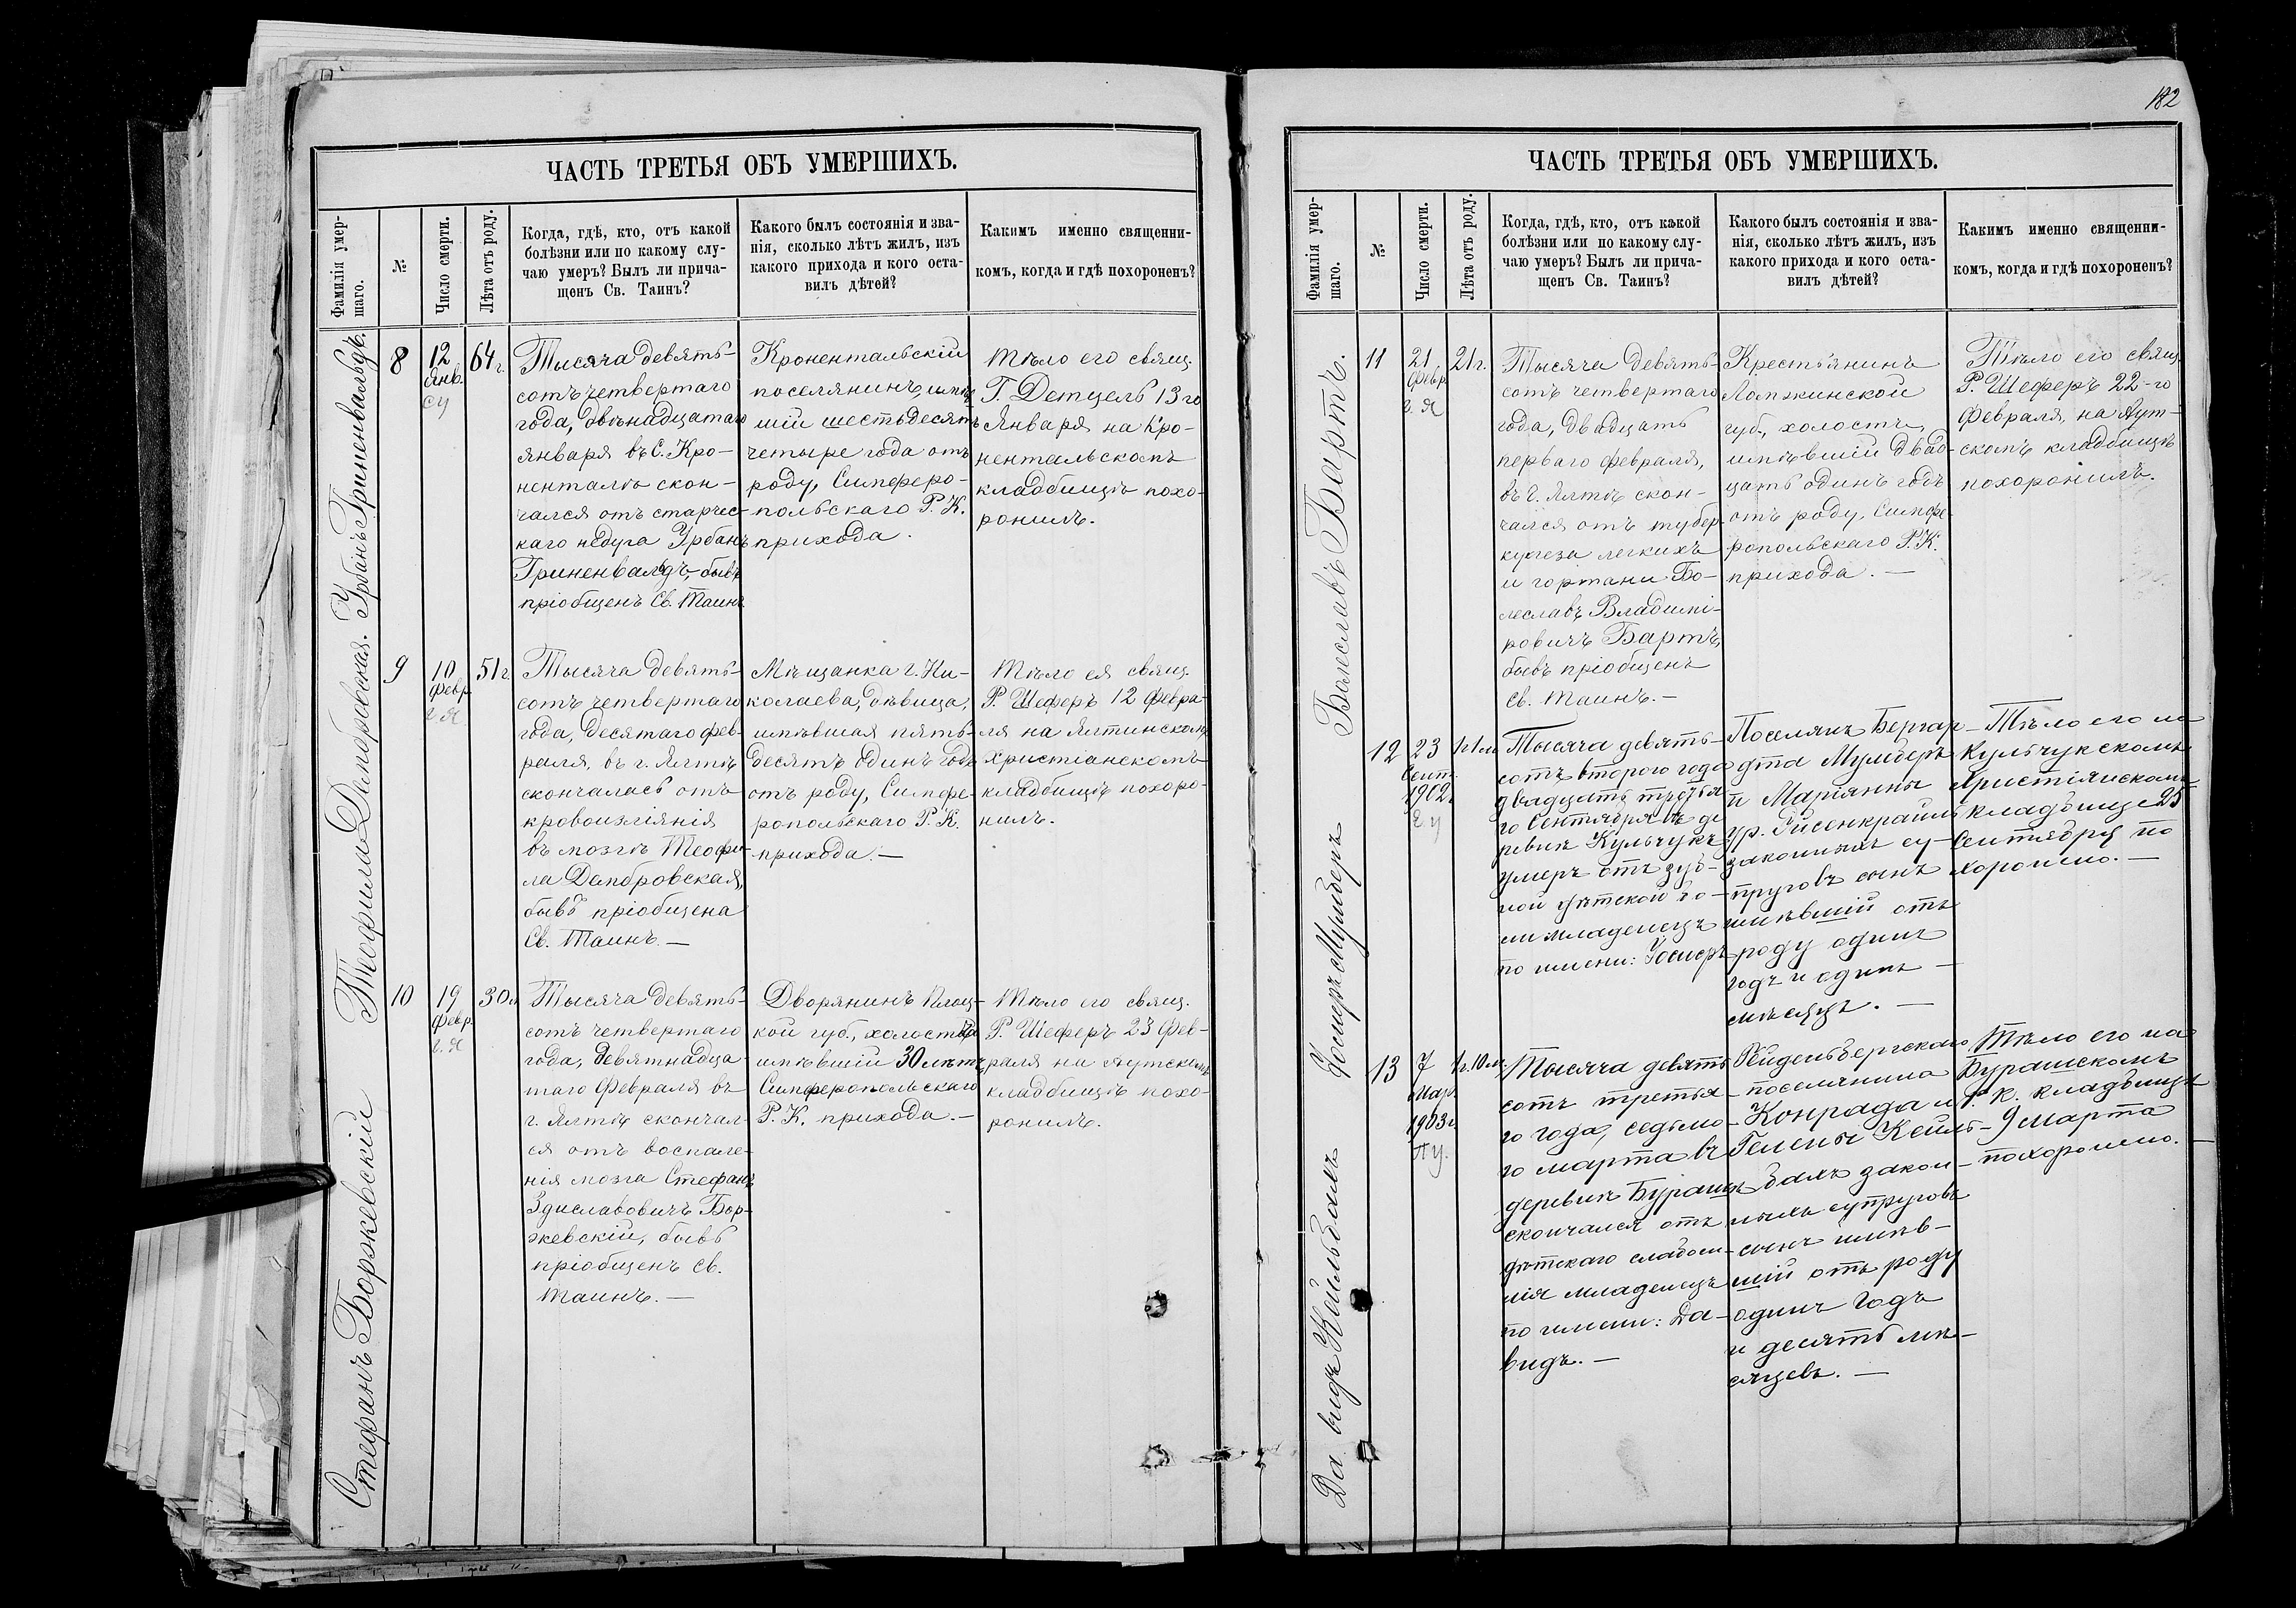 ЧАСТЬ ТРЕТЬЯ ОБЪ УМЕРШИХЪ.
Фамилія умер-
шаго.
№
Число смерти.
Лѣта отъ роду.
Когда, гдѣ, кто, отъ какой
болѣзни или по какому слу-
чаю умеръ? Былъ ли прича-
щенъ Св. Таинъ?
Какого былъ состоянія и зва-
нія, сколько лѣтъ жилъ, изъ
какого прихода и кого оста-
вилъ дѣтей?
Какимъ именно священни-
комъ, когда и гдѣ похороненъ?
Урбанъ Гриненвальдъ.
8
12
Янв.
СУ
64 г.
Тысяча девять-
сотъ четвертаго
года, двѣнадцатаго
января въ С. Кро-
ненталѣ скон-
чался отъ старчес-
каго недуга Урбанъ
Гриненвальдъ, бывъ
пріобщенъ Св. Таинъ
Кронентальскій
поселянинъ, имѣв
шій шестьдесятъ
четыре года отъ
роду, Симферо-
польскаго Р. К.
прихода.
Тѣло его свящ.
Г. Детцель 13 го
Января на Кро-
нентальскомъ
кладбищѣ похо-
ронилъ.
Теофила Домбровская.
9
10
февр.
г. Я
51 г
Тысяча девять-
сотъ четвертаго
года, десятаго фев-
раля, въ г. Ялтѣ
скончалась отъ
кровоизліянія
въ мозгъ Теофи-
ла Домбровская,
бывъ пріобщена
Св. Таинъ. —
Мѣщанка г. Ни-
колаева, дѣвица,
имѣвшая пять-
десятъ одинъ годъ
отъ роду, Симфе-
ропольскаго Р. К.
прихода. —
Тѣло ея свящ.
Р. Шеферъ 12 февра-
ля на Ялтинскомъ
христіанскомъ
кладбищѣ похоро-
нилъ.
Стефанъ Боржкевскій
10
19
февр.
г. Я
30 л
Тысяча девять-
сотъ четвертаго
года, девятнадца-
таго февраля въ
г. Ялтѣ скончал-
ся отъ воспале-
нія мозга Стефанъ
Здиславовичъ Бор-
жкевскій, бывъ
пріобщенъ Св.
Таинъ. —
Дворянинъ Плоц-
кой губ., холостъ,
имѣвшій 30 лѣтъ,
Симферопольскаго
Р. К. прихода. —
Тѣло его свящ.
Р. Шеферъ 23 фев-
раля на Аутскомъ
кладбищѣ похо-
ронилъ.
182
ЧАСТЬ ТРЕТЬЯ ОБЪ УМЕРШИХЪ.
Фамилія умер-
шаго.
№
Число смерти.
Лѣта отъ роду.
Когда, гдѣ, кто, отъ какой
болѣзни или по какому слу-
чаю умеръ? Былъ ли прича-
щенъ Св. Таинъ?
Какого былъ состоянія и зва-
нія, сколько лѣтъ жилъ, изъ
какого прихода и кого оста-
вилъ дѣтей?
Какимъ именно священни-
комъ, когда и гдѣ похороненъ?
Болеславъ Бартъ.
11
21
февр.
г. Я
21 г.
Тысяча девять-
сотъ четвертаго
года, двадцать
перваго февраля,
въ г. Ялтѣ скон-
чался отъ тубер
кулеза легкихъ
и гортани Бо-
леславъ Владимі-
ровичъ Бартъ,
бывъ пріобщенъ
Св. Таинъ. —
Крестьянинъ
Ломжинской
губ., холостъ,
имѣвшій двад-
цать одинъ годъ
отъ роду, Симфе-
ропольскаго Р. К.
прихода. —
Тѣло его свящ.
Р. Шеферъ 22-го
февраля, на Аут-
скомъ кладбищѣ
похоронилъ.
12
23
Сент.
1902
1 г 1 м
Тысяча девять-
сотъ второго года
двадцать третья
го Сентября въ де
ревнѣ Кульчукъ
умеръ отъ зуб-
ной дѣтской бо-
ли младенецъ
по имени:
Поселянъ Бернар-
дта
и Маріянны
ур.
законныхъ су-
пруговъ сынъ
имѣвшій отъ
роду одинъ
годъ и одинъ —
мѣсяцъ. —
Тѣло его на
Кульчукскомъ
Христіанскомъ
кладбищѣ 25
Сентября по
хоронено. —
Давидъ Кейльбахъ
13
7
Мар.
1903 г.
1 г. 10 м.
Тысяча девять
сотъ третья-
го года, седьмо-
го марта въ
деревнѣ Бурашъ
скончался отъ
дѣтскаго слабоси-
лія младенецъ
по имени: Да-
видъ. —
Гейдельбергскаго
поселянина
Конрада и
Гелены Кейль-
бахъ закон-
ныхъ супруговъ
сынъ имѣв-
шій отъ роду
одинъ годъ
и десять мѣ-
сяцевъ. —
Тѣло его на
Бурашскомъ
Р. К. кладбищѣ
9 марта
похоронено.